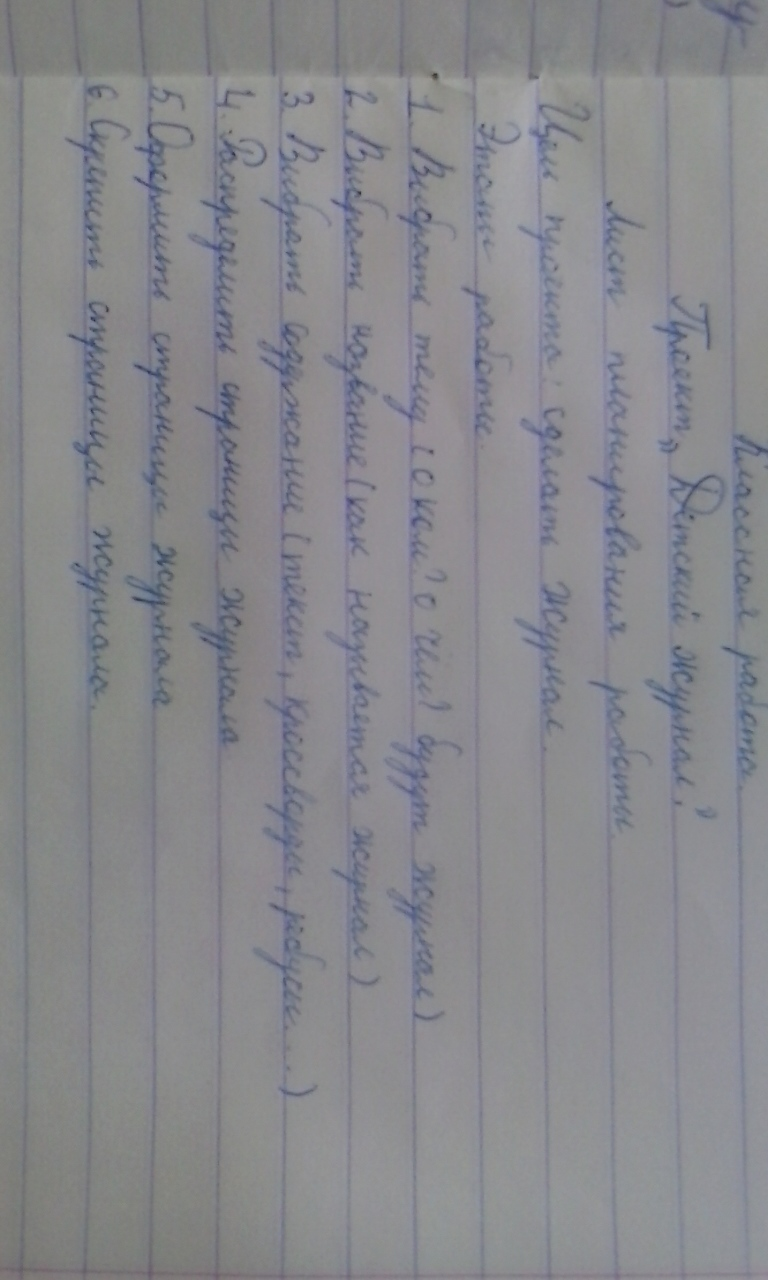 Классная работа.
Проект „Детский журнал."
Лист планирования работы
Цель проекта: сделать журнал.
Этапы работы.
1. Выбрать тему (о ком? о чём? будут журнал)
2. Выбрать название (как называется журнал)
3. Выбрать содержание (текст, кроссворды, ребусы...)
4. Распределить страницы журнала
5. Оформить страницы журнала
6. Скрепить страницы журнала.